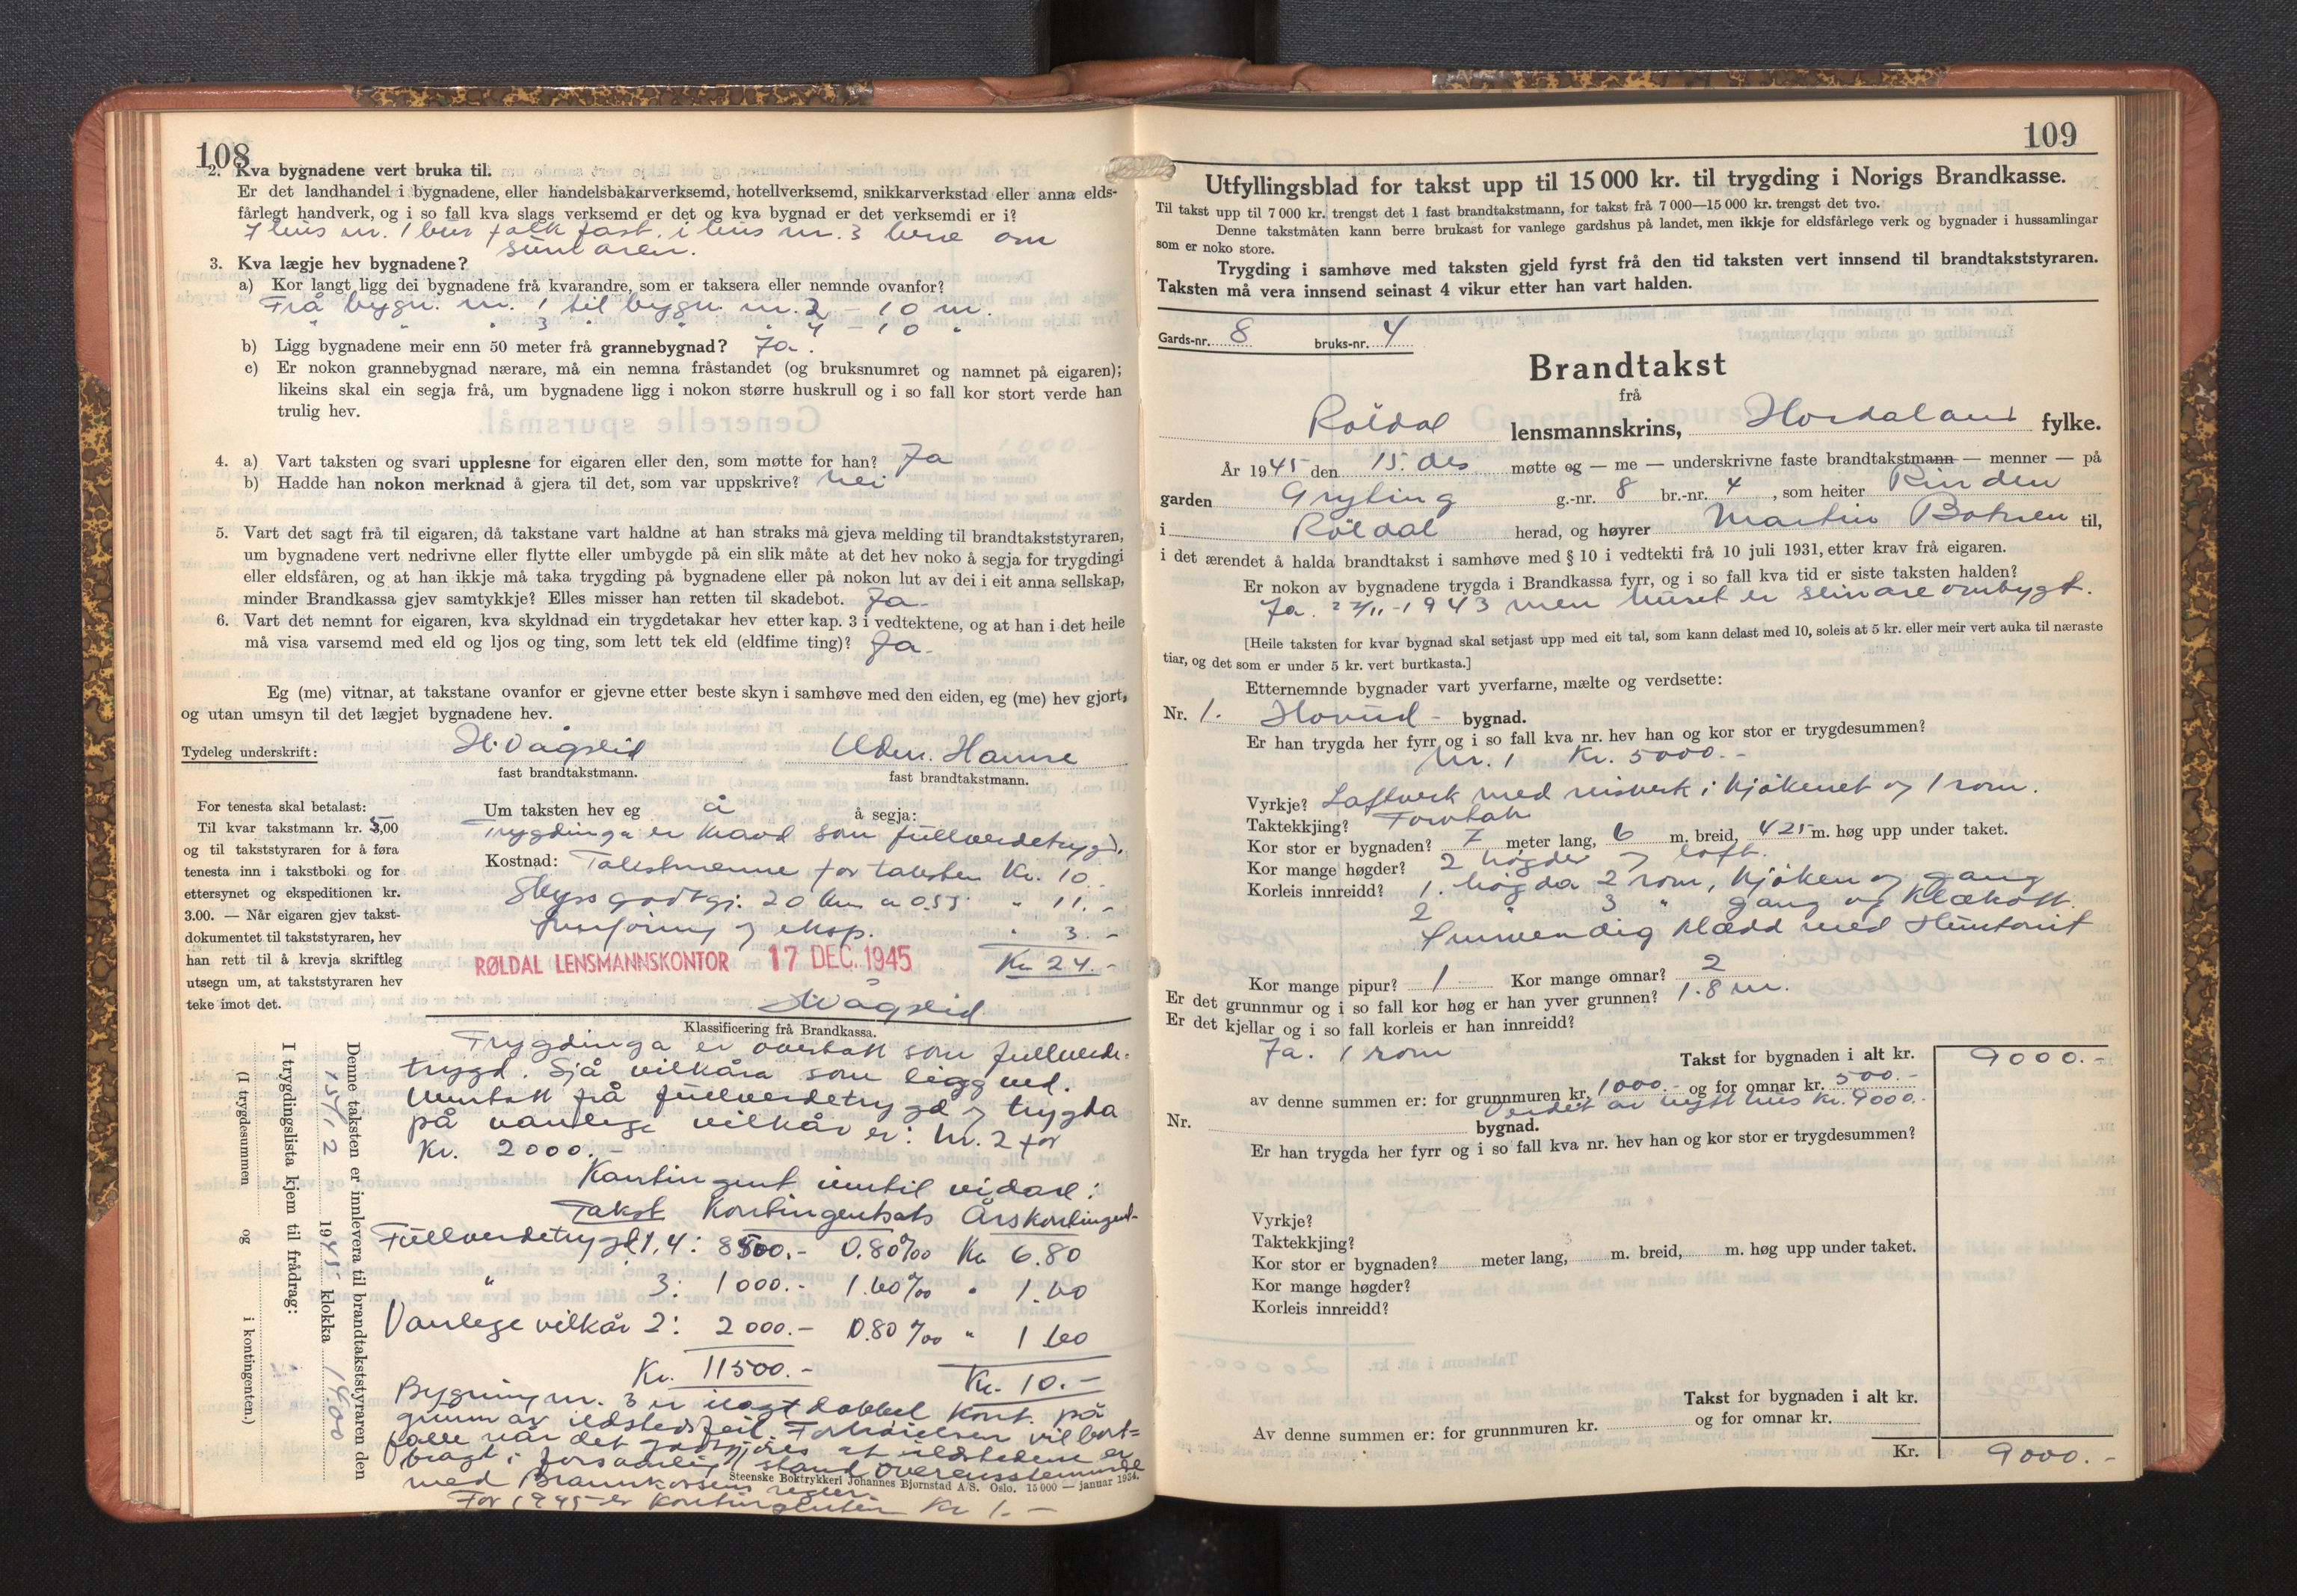 108
2. Kva bygnadene vert bruka til.
Er det landhandel i bygnadene, eller handelsbakarverksemd, hotellverksemd, snikkarverkstad eller anna elds-
fårlegt handverk, og i so fall kva slags verksemd er det og kva bygnad er det verksemdi er i?
I hus nr. 1 bur folk fast. i hus nr. 3 bere om
sumaren.
3. Kva lægje hev bygnadene?
a) Kor langt ligg dei bygnadene frå kvarandre, som er taksera eller nemnde ovanfor?
Frå bygn. nr. 1 til bygn. nr. 2 – 10 m.
" " " 3 " " " 4 – 10 "
b) Ligg bygnadene meir enn 50 meter frå grannebygnad? Ja.
c) Er nokon grannebygnad nærare, må ein nemna fråstandet (og bruksnumret og namnet på eigaren);
likeins skal ein segja frå, um bygnadene ligg i nokon større huskrull og i so fall kor stort verde han
trulig hev.
4. a) Vart taksten og svari upplesne for eigaren eller den, som møtte for han? Ja
b) Hadde han nokon merknad å gjera til det, som var uppskrive? Nei
5. Vart det sagt frå til eigaren, då takstane vart haldne at han straks må gjeva melding til brandtakststyraren,
um bygnadene vert nedrivne eller flytte eller umbygde på ein slik måte at det hev noko å segja for trygdingi
eller eldsfåren, og at han ikkje må taka trygding på bygnadene eller på nokon lut av dei i eit anna sellskap,
minder Brandkassa gjev samtykkje? Elles misser han retten til skadebot. Ja.
6. Vart det nemnt for eigaren, kva skyldnad ein trygdetakar hev etter kap. 3 i vedtektene, og at han i det heile
må visa varsemd med eld og ljos og ting, som lett tek eld (eldfime ting)? Ja.
Eg (me) vitnar, at takstane ovanfor er gjevne etter beste skyn i samhøve med den eiden, eg (me) hev gjort,
og utan umsyn til det lægjet bygnadene hev.
Tydeleg underskrift: H. Vågslid Adm. Hamre
fast brandtakstmann. fast brandtakstmann.
For tenesta skal betalast:
Til kvar takstmann kr. 5,00
og til takststyraren for å føra
tenesta inn i takstboki og for
ettersynet og ekspeditionen kr.
3.00. — Når eigaren gjev takst-
dokumentet til takststyraren, hev
han rett til å krevja skriftleg
utsegn um, at takststyraren hev
teke imot det.
Um taksten hev eg å å segja:
Trygdinga er kravd som fullverdetrygd.
Kostnad: Takstmenne for taksten Kr. 10.-
Skyssgodtgj. 20 km a 0.55 " 11.-
Innføring og eksp. " 3.-
RØLDAL LENSMANNSKONTOR 17 DEC. 1945 Kr 24.-
H Vågslid
Klassificering frå Brandkassa.
Trygdinga er overtatt som fullverde-
trygd. Sjå vilkåra som ligg ved.
Unntatt frå fullverdetrygd og trygda
på vanlege vilkår er: Nr. 2 for
Kr. 2000.-
Kontingent inntil vidare:
Takst Kontingentsats Årskontingent
Fullverdetrygd 1, 4: 8500.- 0.80‰ Kr 6.80
" 3: 1000.- 1.60‰ " 1.60
Vanlege vilkår 2: 2000.- 0.80‰ " 1.60
Kr. 11500.- Kr. 10.-
Bygning nr. 3 er ilagt dobbel kont. på
grunn av ildstedsfeil. Forhøielsen vil bort-
falle når det godtgjøres at ildstedene er
bragt i forsvarlig stand overensstemmende
med Brannkassens regler.
For 1945 er kontingenten Kr 1.-
Steenske Boktrykkeri Johannes Bjørnstad A/S. Oslo. 15 000 — januar 1934.
Denne taksten er innlevera til brandtakststyraren den
15/12 1945 klokka 14.00
I trygdingslista kjem til frådrag:
(I trygdesummen og i kontingenten.)
109
Utfyllingsblad for takst upp til 15 000 kr. til trygding i Norigs Brandkasse.
Til takst upp til 7 000 kr. trengst det 1 fast brandtakstmann, for takst frå 7 000—15 000 kr. trengst det tvo.
Denne takstmåten kann berre brukast for vanlege gardshus på landet, men ikkje for eldsfårlege verk og bygnader i hussamlingar
som er noko store.
Trygding i samhøve med taksten gjeld fyrst frå den tid taksten vert innsend til brandtakststyraren.
Taksten må vera innsend seinast 4 vikur etter han vart halden.
Gards-nr. 8 bruks-nr. 4
Brandtakst
frå
Röldal lensmannskrins, Hordaland fylke.
År 1945 den 15. des møtte og — me — underskrivne faste brandtakstmann — menner — på
garden Gryting g.-nr. 8 br.-nr. 4, som heiter Rinden
i Röldal herad, og høyrer Martin Botnen til,
i det ærendet å halda brandtakst i samhøve med § 10 i vedtekti frå 10 juli 1931, etter krav frå eigaren.
Er nokon av bygnadene trygda i Brandkassa fyrr, og i so fall kva tid er siste taksten halden?
Ja. 22/11-1943 men huset er seinare ombygt.
[Heile taksten for kvar bygnad skal setjast upp med eit tal, som kann delast med 10, soleis at 5 kr. eller meir vert auka til næraste
tiar, og det som er under 5 kr. vert burtkasta.]
Etternemnde bygnader vart yverfarne, mælte og verdsette:
Nr. 1. Hovud- bygnad.
Er han trygda her fyrr og i so fall kva nr. hev han og kor stor er trygdesummen?
Nr. 1 Kr. 5000.-
Vyrkje? Laftverk med reisverk i kjøkenet og 1 rom.
Taktekkjing? Torvtak
Kor stor er bygnaden? 7 meter lang, 6 m. breid, 425 m. høg upp under taket.
Kor mange høgder? 2 høgder og loft.
Korleis innreidd? 1. høgda 2 rom, kjøken og gang
2 " 3 " gang og klækott.
Innvendig klædd med Huntonit
Kor mange pipur? 1 Kor mange omnar? 2
Er det grunnmur og i so fall kor høg er han yver grunnen? 1.8 m.
Er det kjellar og i so fall korleis er han innreidd?
Ja. 1 rom
Takst for bygnaden i alt kr. 9000.-
av denne summen er: for grunnmuren kr. 1000.- og for omnar kr. 500.-
Verdet av nytt hus kr. 9000.-
Nr. bygnad.
Er han trygda her fyrr og i so fall kva nr. hev han og kor stor er trygdesummen?
Vyrkje?
Taktekkjing?
Kor stor er bygnaden? meter lang, m. breid, m. høg upp under taket.
Kor mange høgder?
Korleis innreidd?
Takst for bygnaden i alt kr.
Av denne summen er: for grunnmuren kr. og for omnar kr.
Kr. 9000.-